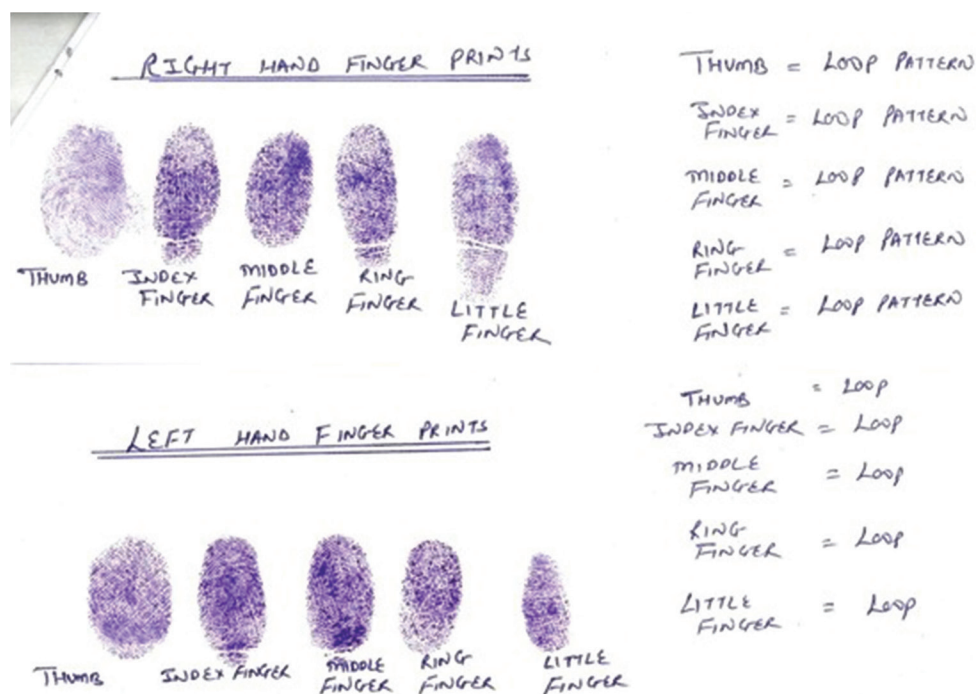 RIGHT HAND FINGER PRINTS
THUMB
INDEX FINGER
MIDDLE FINGER
RING FINGER
LITTLE FINGER
THUMB = LOOP PATTERN
INDEX FINGER = LOOP PATTERN
MIDDLE FINGER = LOOP PATTERN
RING FINGER = LOOP PATTERN
LITTLE FINGER = LOOP PATTERN
LEFT HAND FINGER PRINTS
THUMB
INDEX FINGER
MIDDLE FINGER
RING FINGER
LITTLE FINGER
THUMB = LOOP
INDEX FINGER = LOOP
MIDDLE FINGER = LOOP
RING FINGER = LOOP
LITTLE FINGER = LOOP